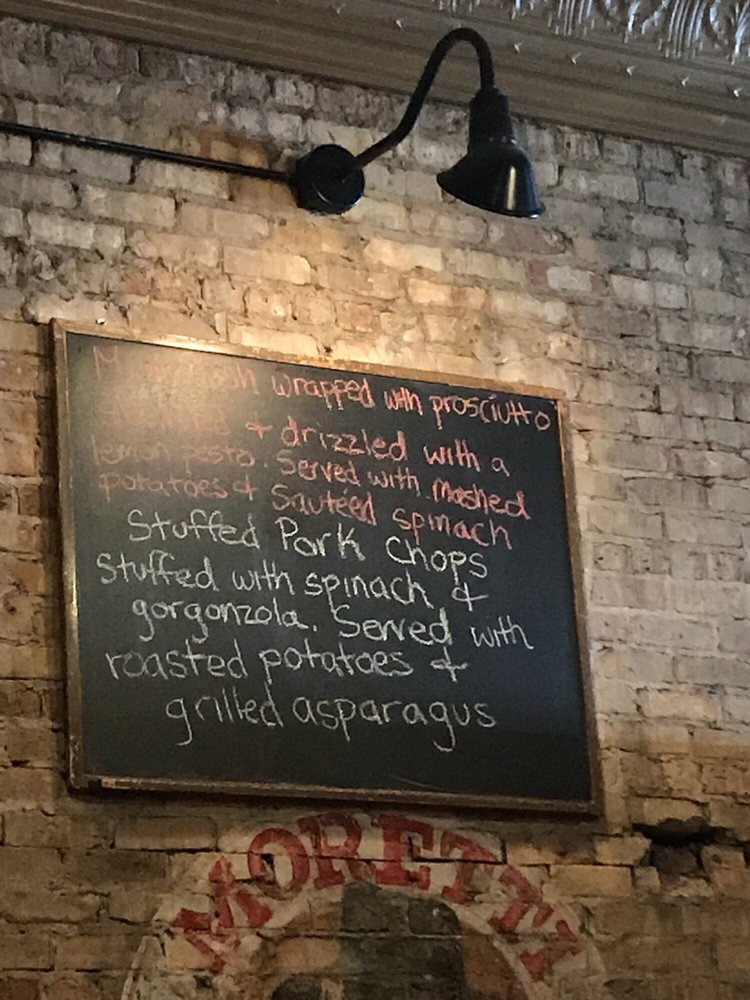 wrapped with prosciutto
+ drizzled with a
lemon pesto. Served with mashed
potatoes + Sautéed spinach
Stuffed Pork Chops
Stuffed with spinach +
gorgonzola. Served with
roasted potatoes +
grilled asparagus
MORETTI